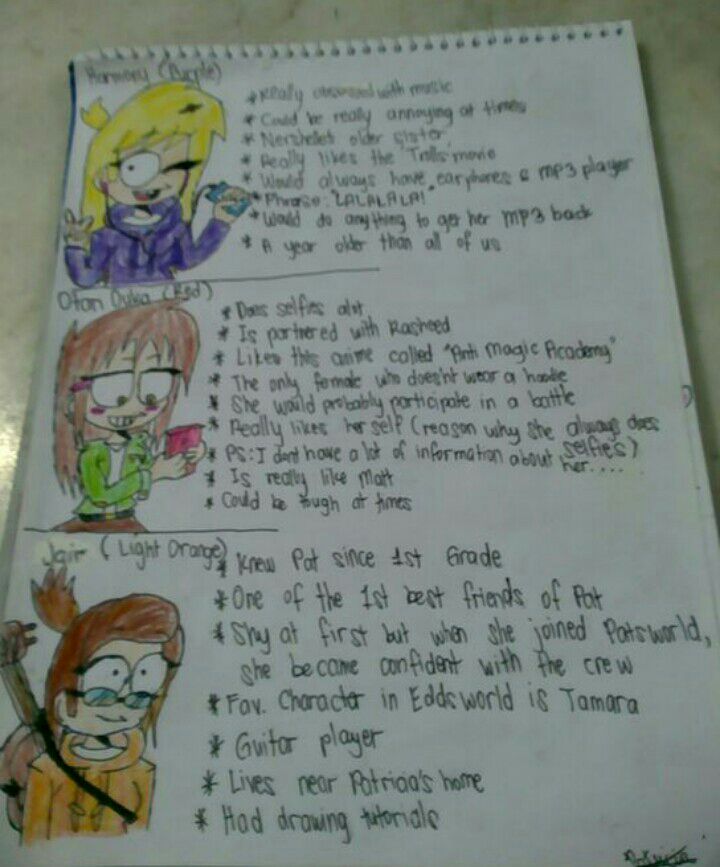 Harmony (Purple)
* Really obsessed with music
* Could be really annoying at times
* Nershelle's older sister
* Really likes the "Trolls" movie
* Would always have earphones & mp3 player
* Phrase: LALALALA!
* Would do anything to ger her mp3 back
* A year older than all of us
(Red)
* Does selfies alot
* Is partnered with Rasheed
* Likes this anime called "Anti Magic Academy"
* The only female who doesn't wear a hoodie
* She would probably participate in a battle
* Really likes her self (reason why she always does
selfies)
* PS: I dont have a lot of information about her....
* Is really like Matt
* Could be tough at times
Jair (Light Orange)
* Knew Pat since 1st Grade
* One of the 1st best friends of Pat
* Shy at first but when she joined Patsworld,
she became confident with the crew
* Fav. Character in Eddsworld is Tamara
* Guitar player
* Lives near Patricia's home
* Had drawing tutorials